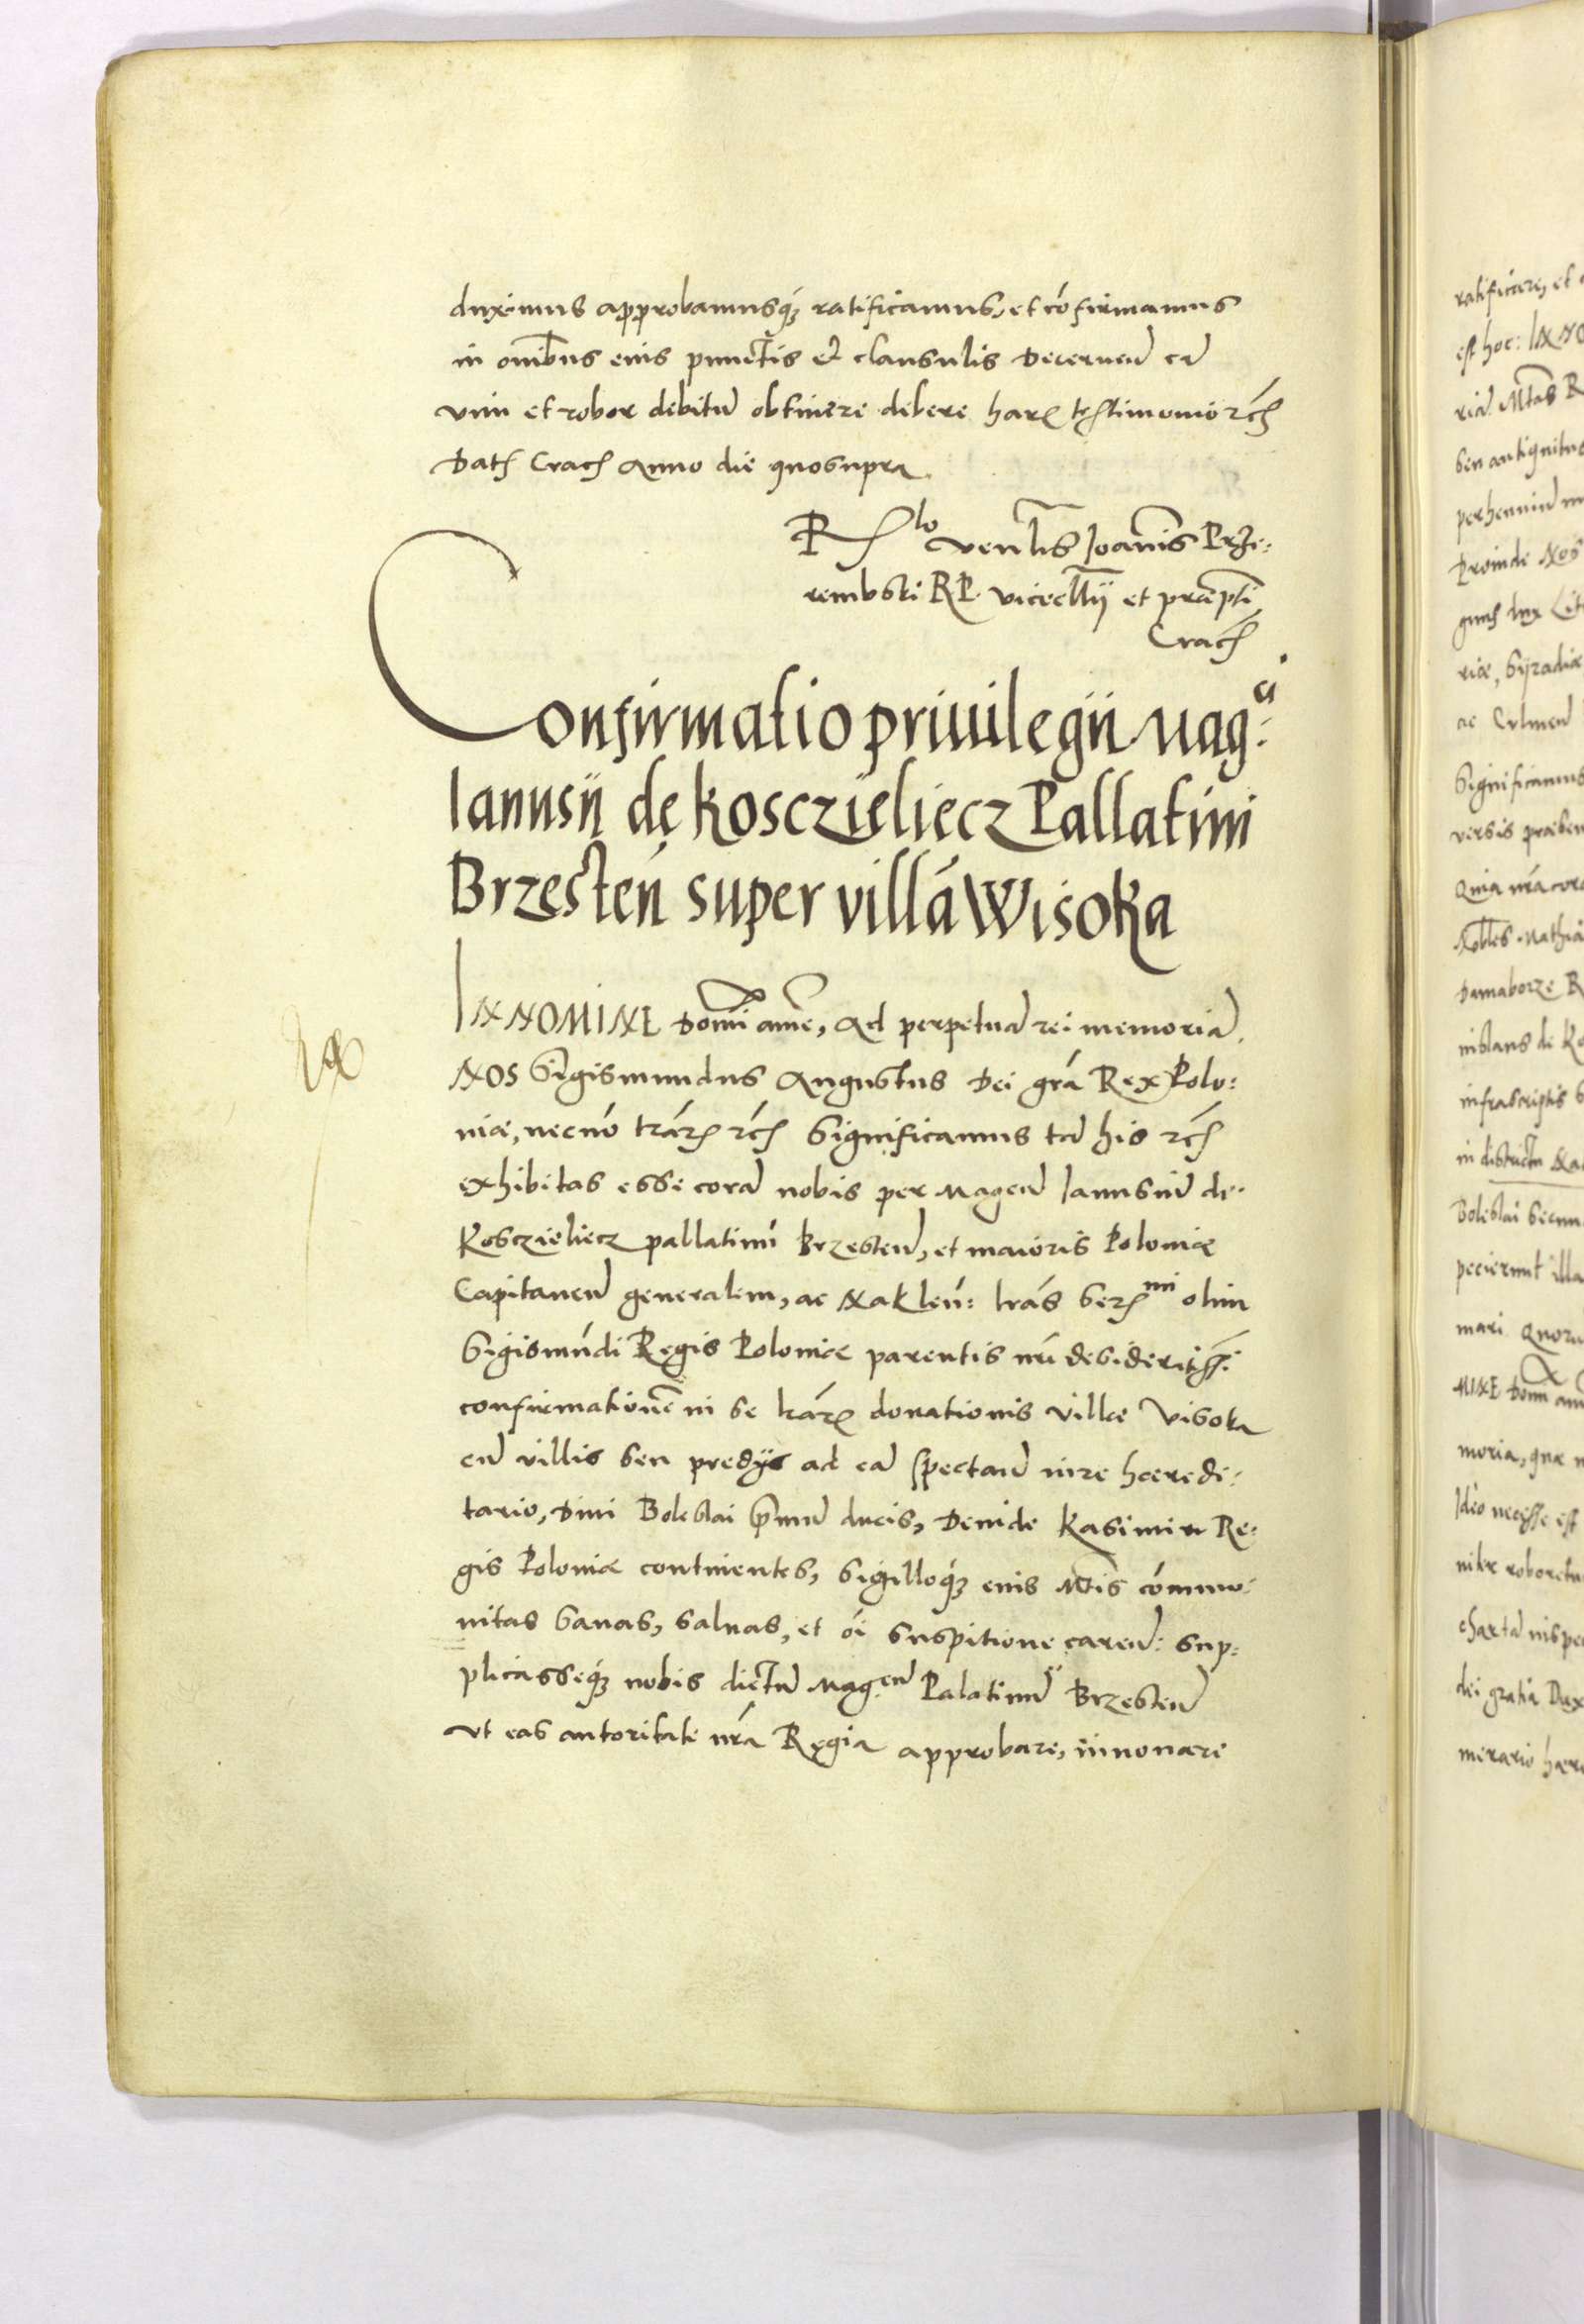 duximus approbamusq́ꝫ ratificamus, et cófirmamus
in omībus eius punctis et clausulis Decernen̄ eā
vim et robor debitū obtinere debere harꝫ testimonio rc̄ꝭ
Datꝭ Cracꝭ Anno die quosupra.
Rlo venlis̄ Joannis Prze:
rembski RP. vicecllīj et præpti
Cracꝭ
Confirmatio priuilegii Magci:
Ianusii de Kosczieliecz Pallatini
Brzesteń super villā Wisoka
IN NOMINE Domī amē, Ad perpetuā rei memoriā.
NOS Sigismundus Augustus Dei grā Rex Polo:
niæ, necnō trārꝫ rc̄ꝭ Significamus tā his rc̄ꝭ
exhibitas esse corā nobis per Magcū Ianusiū de.
Kosczieliecz pallatinū Brzesteń, et maioris Poloniæ
Capitaneū generalem, ac Nakleń: lrās Serꝫmi olim
Sigismūdi Regis Poloniæ parentis nrī desideratisś:
confirmationē in se lrārꝫ donationis villæ Visoka
cū villis seu predijs ad eā spectań iure hæredi:
tario, Diui Boleslai Primū ducis, Deinde Kasimiri Re:
gis Poloniæ continentes, sigilloq́ꝫ eius Mtīs cōmmu:
nitas Sanas, saluas, et oī suspitione careń: sup:
plicasseq́ꝫ nobis dictū Magcū Palatinū Brzesteń
Vt eas autoritate nrā Regia approbare, innouare
ratificare, et
est hoc: IN NO
riā Mtas R
seu antiquitus
perhenniū m
Proinde Nos
gnus dux Lit
riæ, Syradiæ
ac Culmeń
Significamus
versis præsen
Quia nrā cora
Nobles Mathia
Damaborze R
nislaus de Ko
infrascriptis
in districtu Na
Boleslai secun
pecierunt illa
mari Quoru
MINE Domī am
moria, quæ
Ideo necesse est
niter roboretu
chartā inspe
dei gratia Dux
merario hære